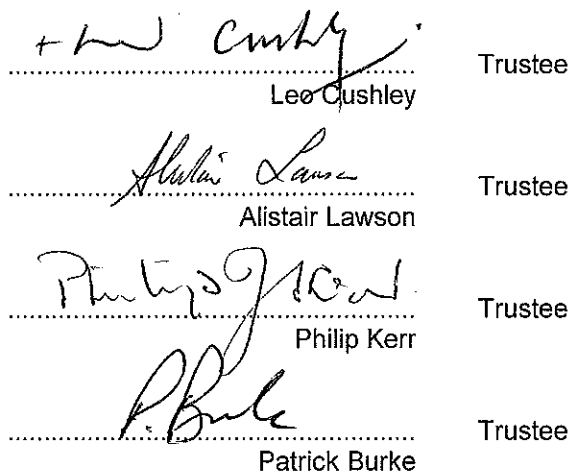 + Leo Cushley
.......................................................... Trustee
Leo Cushley
Alistair Lawson
.......................................................... Trustee
Alistair Lawson
Philip J Kerr
.......................................................... Trustee
Philip Kerr
P. Burke
.......................................................... Trustee
Patrick Burke